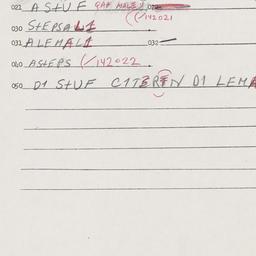 021 A STUF GAF MALE)
(/142021
030 STEPSAL1
031 ALEMAL1 032 —
040 ASTEPS (/142022 .
050 D1 STUF C1TERIN D1 LEMA